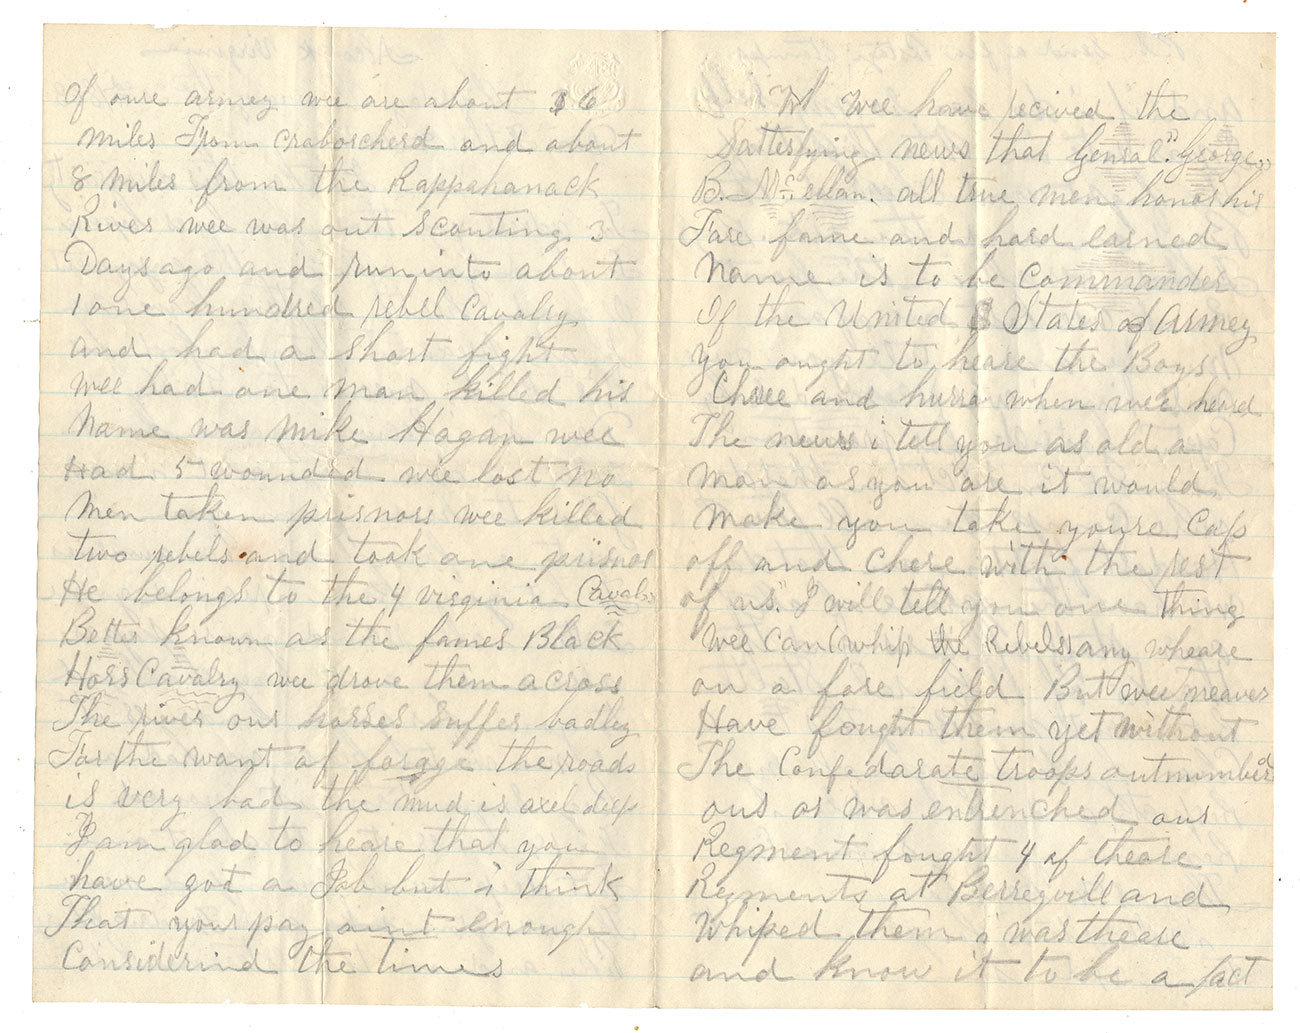 of oure armey wee are about 16
miles From craborcherd and about
8 miles from the Rappahanack
River wee was out scouting 3
Days ago and run into about
1 one hundred rebel Cavalry
and had a short fight
wee had one man killed his
Name was Mike Hagan wee
Had 5 wounded wee lost no
Men taken prisnors wee killed
two rebels and took one prisnor
He belongs to the 4 virginia Cavalr
Better known as the fames Black
Hors Cavalry wee drove them across
The river our horses suffer badley
For the want of forage the roads
is very bad the mud is axel deep
I am glad to heare that you
have got a Job but i think
That your pay aint enough
Considerind the times
Wee have recived the
Sattesfying news that Genral "George"
B. McCellan. all true men honor his
Fare fame and hard earned
Name is to be Commander
If the United States of Armey
you ought to heare the Boys
Cheree and hurra when wee heard
The news i tell you as old a
man as you are it would
make you take youre Cap
off and chere with the rest
of us." I will tell you one thing
wee can (whip the Rebels) any wheare
on a fare field But wee neaver
Have fought them yet without
The Confedarate troops outnumberd
our or was entrenched our
Regment fought 4 of theare
Regments at Berreyvill and
Whiped them i was theare
and know it to be a fact